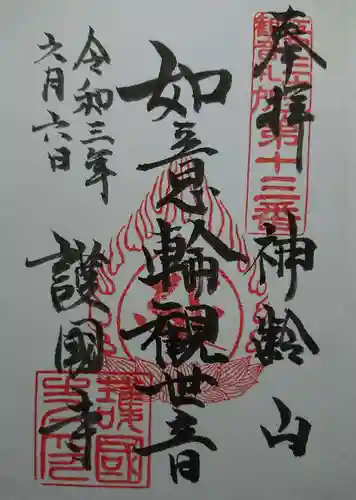 奉拝
第十三番
神齢山
如意輪観世音
令和三年
六月六日
護國寺